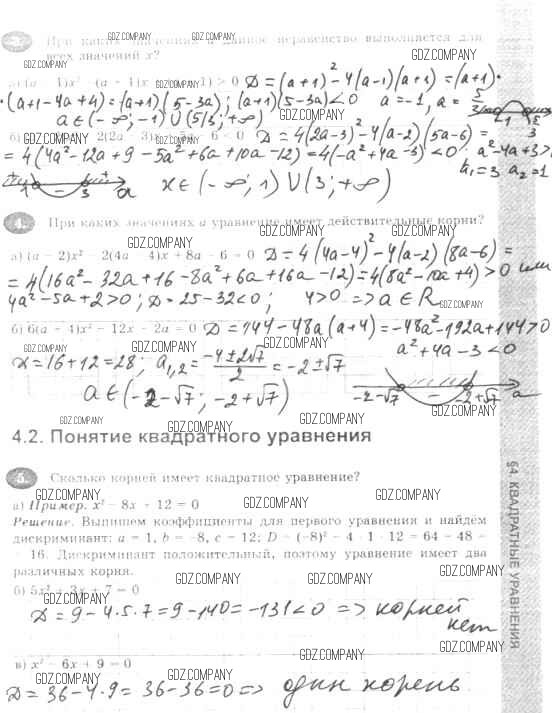 При каких значениях а данное неравенство выполняется для
всех значений х?
D = (a+1)² - 4(a-1)(a+1) = (a+1)·
·(a+1-4a+4) = (a+1)(5-3a); (a+1)(5-3a) < 0 a = -1, a = 5/3
a ∈ (-∞; -1) ∪ (5/3; +∞)
D = 4(2a-3)² - 4(a-2)(5a-6) =
= 4(4a² - 12a + 9 - 5a² + 6a + 10a - 12) = 4(-a² + 4a - 3) < 0 · a² - 4a + 3 >
a₁ = 3 a₂ = 1
1 - 3 a x ∈ (-∞; 1) ∪ (3; +∞)
4. При каких значениях а уравнение имеет действительные корни?
а) (a - 2)x² - 2(4a - 4)x + 8a - 6 = 0 D = 4(4a-4)² - 4(a-2)(8a-6) =
= 4(16a² - 32a + 16 - 8a² + 6a + 16a - 12) = 4(8a² - 10a + 4) > 0 или
4a² - 5a + 2 > 0; D = 25 - 32 < 0; 4 > 0 => a ∈ R
б) 6(a + 4)x² - 12x - 2a = 0 D = 144 - 48a(a+4) = -48a² - 192a + 144 > 0
a² + 4a - 3 < 0
D = 16 + 12 = 28; a₁,₂ = (-4 ± 2√7)/2 = -2 ± √7
a ∈ (-2 - √7; -2 + √7)
-2-√7 - -2+√7 a
4.2. Понятие квадратного уравнения
5. Сколько корней имеет квадратное уравнение?
а) Пример. x² - 8x + 12 = 0
Решение. Выпишем коэффициенты для первого уравнения и найдём
дискриминант: a = 1, b = -8, c = 12; D = (-8)² - 4 · 1 · 12 = 64 - 48 =
= 16. Дискриминант положительный, поэтому уравнение имеет два
различных корня.
б) 5x² + 3x + 7 = 0
D = 9 - 4·5·7 = 9 - 140 = -131 < 0 => корней
нет
в) x² - 6x + 9 = 0
D = 36 - 4·9 = 36 - 36 = 0 => один корень
§4. КВАДРАТНЫЕ УРАВНЕНИЯ
GDZ.COMPANY